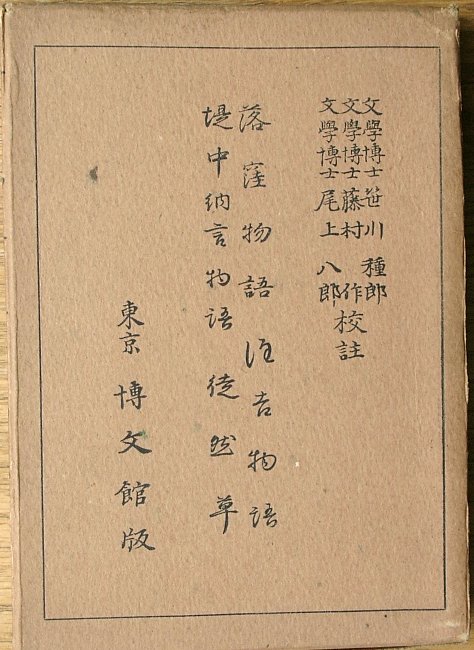 文學博士 笹川 種郎
文學博士 藤村 作
文學博士 尾上 八郎
校註
落窪物語 住吉物語
堤中納言物語 徒然草
東京 博文館版